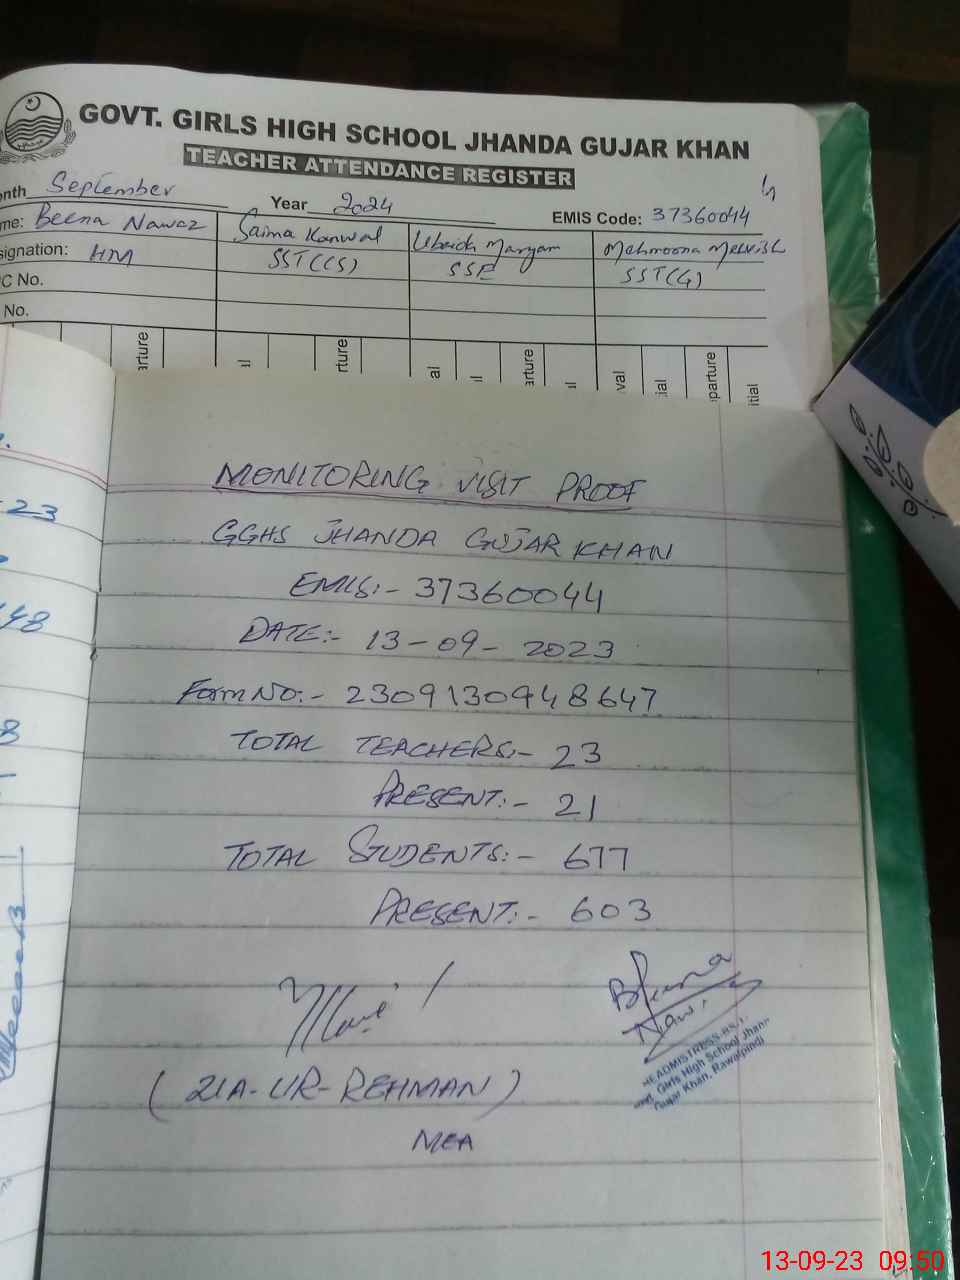 GOVT. GIRLS HIGH SCHOOL JHANDA GUJAR KHAN
TEACHER ATTENDANCE REGISTER
onth September Year 2024 EMIS Code: 37360044
me: Beena Nawaz Saima Kanwal Maryam Mehmoona
signation: HM SST(CS) SSE SST(G)
C No.
No.
arture rture al arture val parture itial
MONITORING VISIT PROOF
GGHS JHANDA GUJAR KHAN
EMIS:- 37360044
DATE:- 13-09-2023
Form NO:- 2309130948647
TOTAL TEACHERS:- 23
PRESENT:- 21
TOTAL STUDENTS:- 677
PRESENT:- 603
Beena
Naw
HEADMISTRESS
Girls High School Jhan
Gujar Khan, Rawalpindi
(ZIA-UR-REHMAN)
MEA
23
48
8
13-09-23 09:50